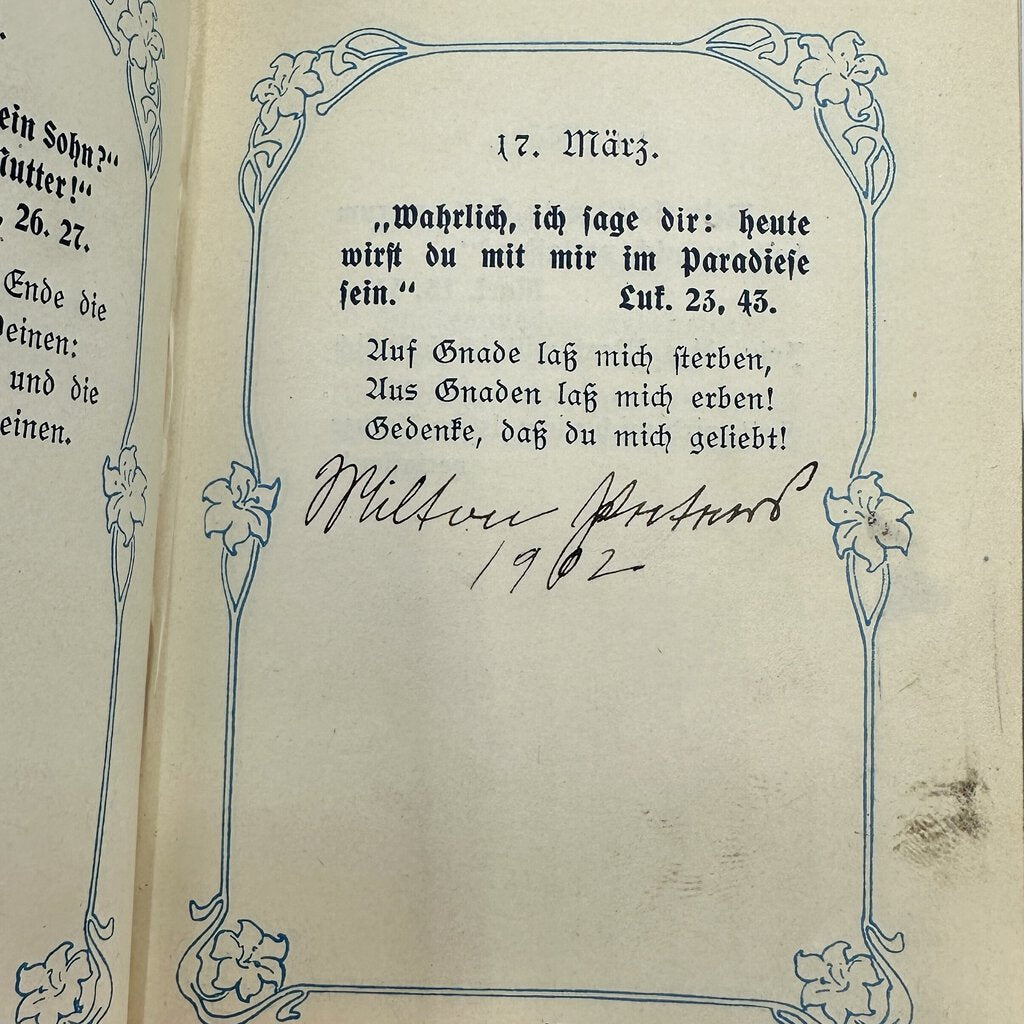 ein Sohn?“
Mutter!“
26. 27.
Ende die
Deinen:
und die
einen.
17. März.
„Wahrlich, ich sage dir: heute
wirst du mit mir im Paradiese
sein.“ Luk. 23, 43.
Auf Gnade laß mich sterben,
Aus Gnaden laß mich erben!
Gedenke, daß du mich geliebt!
Milton
1902